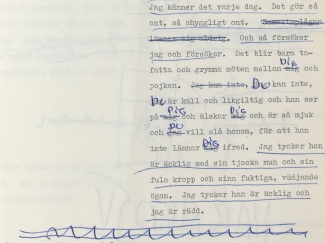 Jag känner det varje dag. Det gör så
ont, så ohyggligt ont. Samvetsplågan
lämnar mig aldrig. Och så försöker
jag och försöker. Det blir bara ta-
fatta och grymma möten mellan mig DIG och
pojken. Jag kan inte, DU kan inte,
DU är kall och likgiltig och han ser
på mig DIG och älskar mig DIG och är så mjuk
och jag DU vill slå honom, för att han
inte lämnar mig DIG ifred. Jag tycker han
är äcklig med sin tjocka mun och sin
fula kropp och sina fuktiga, vädjande
ögon. Jag tycker han är äcklig och
jag är rädd.